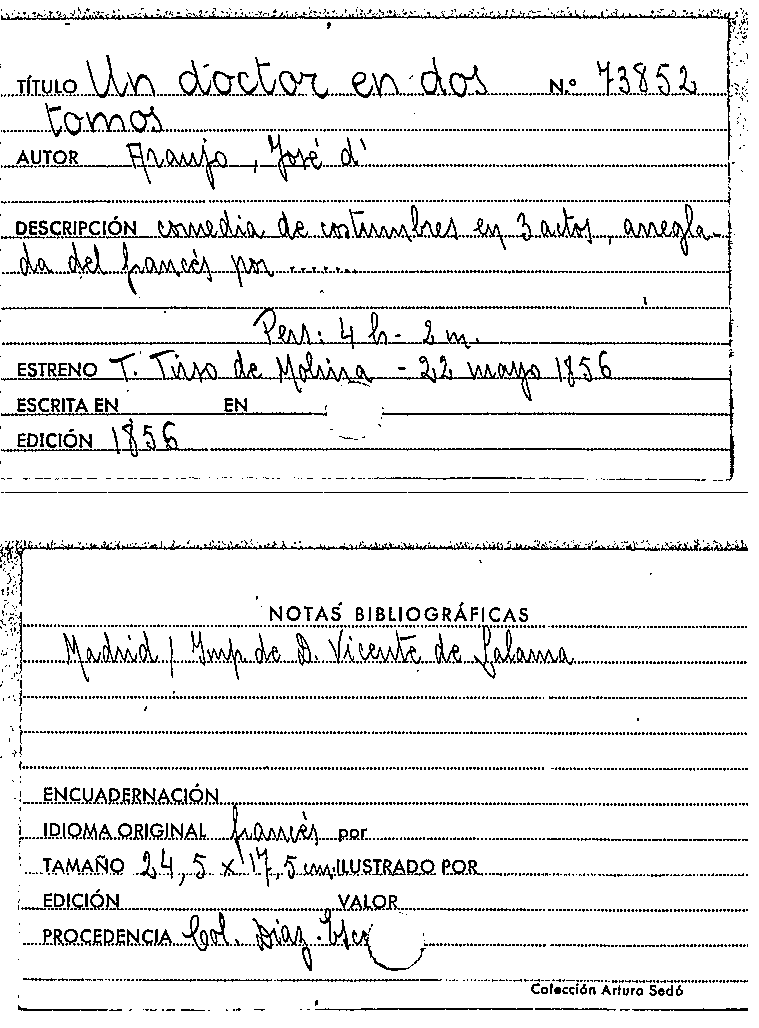 TÍTULO Un doctor en dos N.º 73852
tomos
AUTOR Araujo, José d'
DESCRIPCIÓN comedia de costumbres en 3 actos, arregla-
da del francés por .......
Pers: 4 h - 2 m.
ESTRENO T. Tirso de Molina - 22 mayo 1856
ESCRITA EN EN
EDICIÓN 1856
NOTAS BIBLIOGRÁFICAS
Madrid / Imp. de D. Vicente de Lalama
ENCUADERNACIÓN
IDIOMA ORIGINAL francés por
TAMAÑO 24,5 x 17,5 cm. ILUSTRADO POR
EDICIÓN VALOR
PROCEDENCIA Col. Díaz-
Colección Arturo Sedó